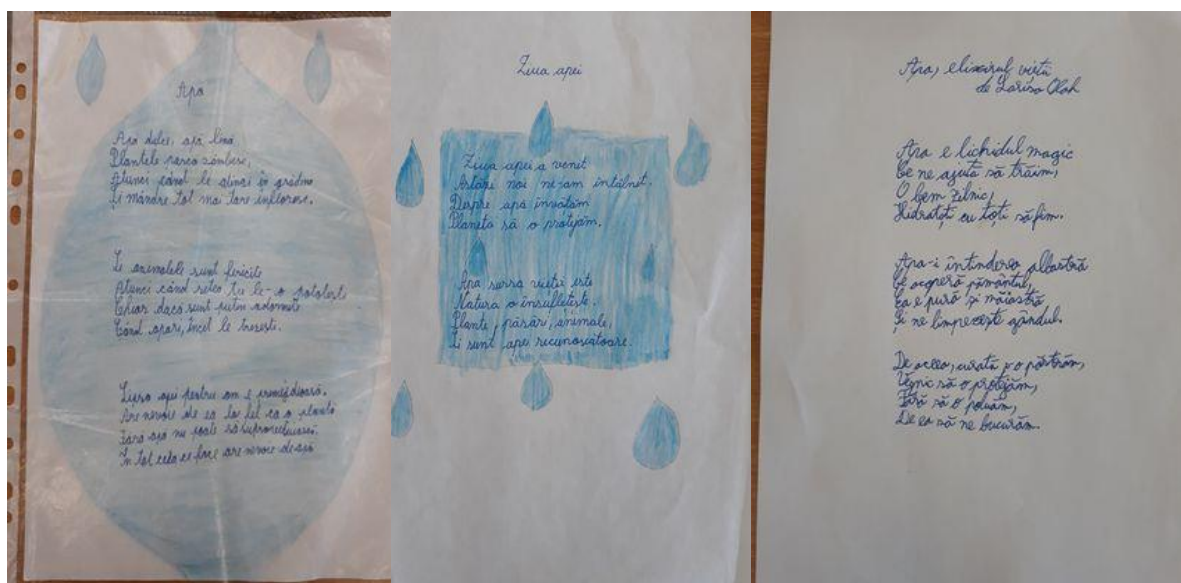 Apa
Apă dulce, apă lină,
Plantele parcă zâmbesc,
Atunci când le atingi în grădină
Și mândre tot mai tare înfloresc.
Și animalele sunt fericite
Atunci când setea tu le-o potolești
Chiar dacă sunt puțin adormite
Când apari, încet le trezești.
Lipsa apei pentru om e primejdioasă.
Are nevoie de ea la fel ca o plantă
Fără apă nu poate să supraviețuiască
În tot ceea ce face are nevoie de apă
Ziua apei
Ziua apei a venit
Astăzi noi ne-am întâlnit.
Despre apă învățăm
Planeta să o protejăm.
Apa sursa vieții este
Natura o însuflețește.
Plante, păsări, animale,
Îi sunt apei recunoscătoare.
Apa, elixirul vieții
de Larisa Olah
Apa e lichidul magic
Ce ne ajută să trăim,
O bem zilnic,
Hidratați cu toți să fim.
Apa-i întinderea albastră
Ce acoperă pământul,
Ea e pură și măiastră
Și ne limpezește gândul.
De aceea, curată s-o păstrăm,
Veșnic să o protejăm,
Fără să o poluăm,
De ea să ne bucurăm.